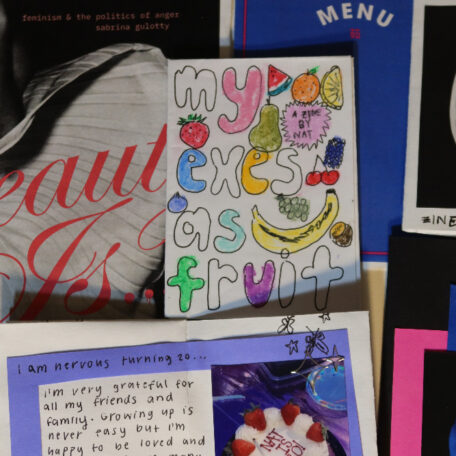 feminism & the politics of anger
sabrina gulotty
MENU
my
A ZINE
BY
NAT
exes
as
fruit
Is...
i am nervous turning 20...
I'm very grateful for
all my friends and
family. Growing up is
never easy but I'm
happy to be loved and
NAT
IS
20!